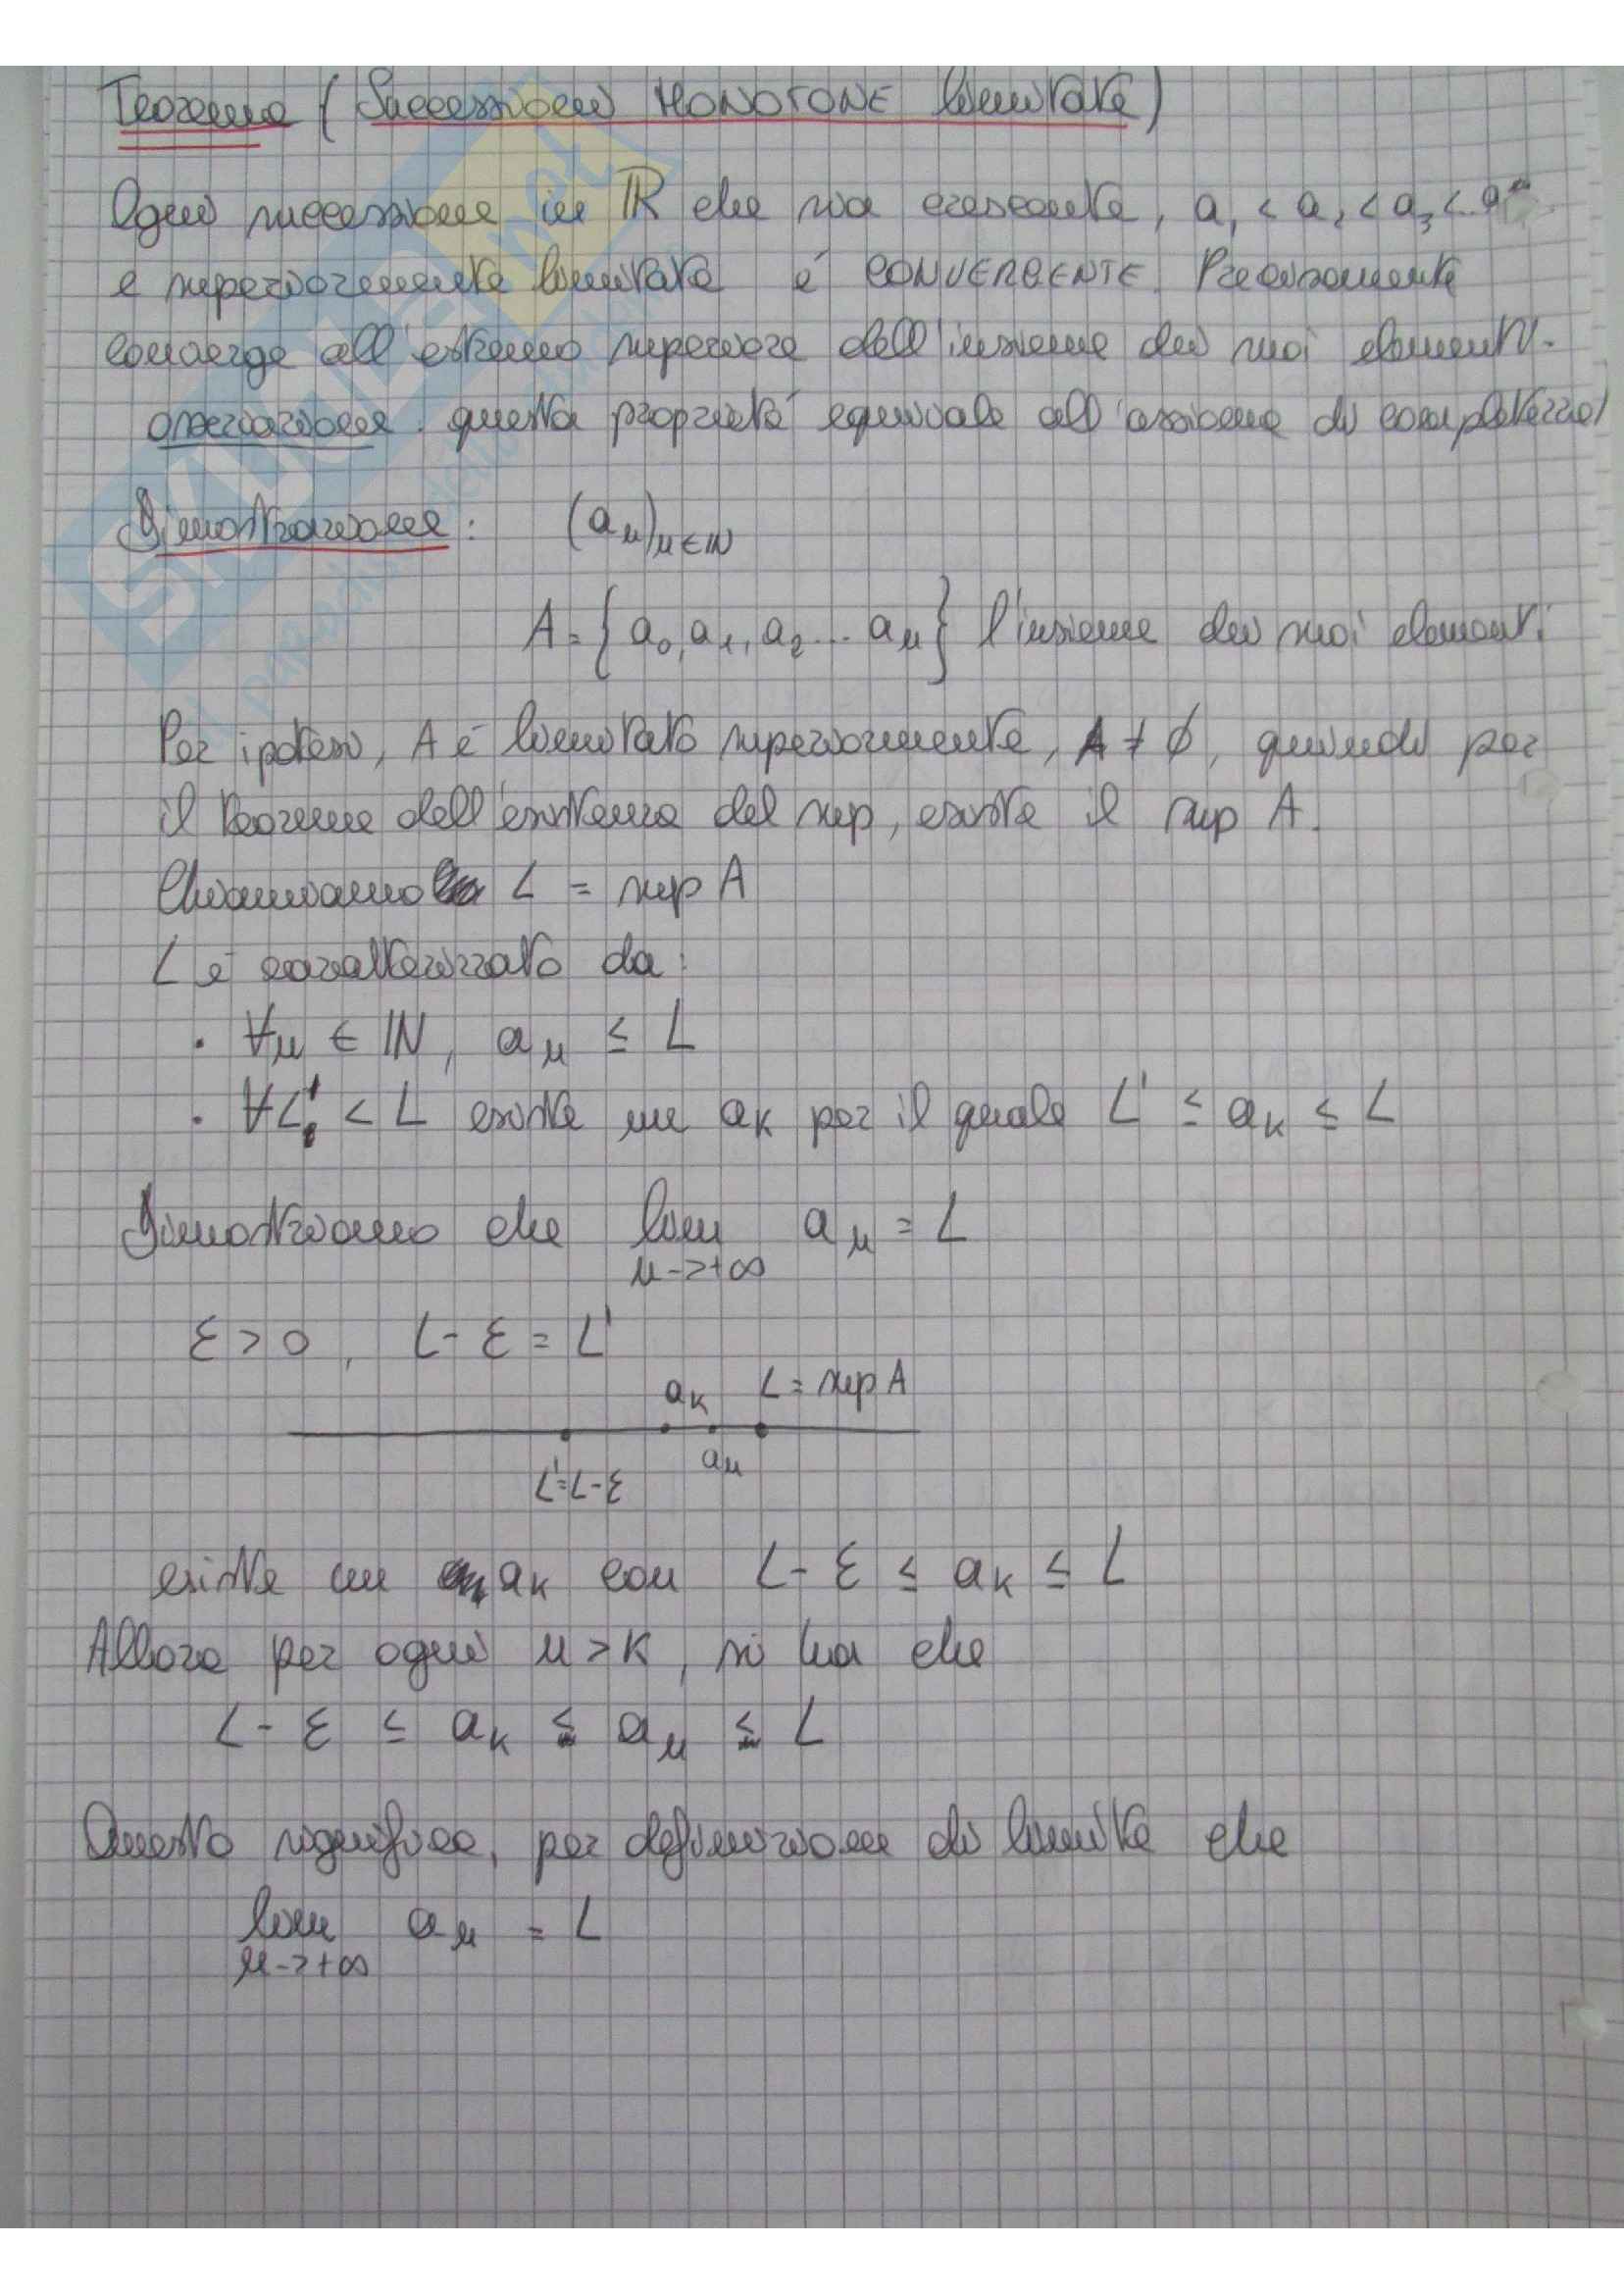 Teorema (Successioni MONOTONE limitate)
Ogni successione in ℝ che sia crescente, a₁ < a₂ < a₃ < ... aⁿ
e superiormente limitata é CONVERGENTE. Precisamente
converge all'estremo superiore dell'insieme dei suoi elementi.
osservazione: questa proprietá equivale all'assioma di completezza
Dimostrazione: (aₙ)ₙ∈ℕ
A = { a₀, a₁, a₂ ... aₙ } l'insieme dei suoi elementi
Per ipotesi, A é limitato superiormente, A ≠ ∅, quindi per
il teorema dell'esistenza del sup, esiste il sup A.
Chiamiamo L = sup A
L é caratterizzato da:
• ∀n ∈ ℕ, aₙ ≤ L
• ∀L' < L esiste un aₖ per il quale L' ≤ aₖ ≤ L
Dimostriamo che lim aₙ = L
n->+∞
ε > 0, L - ε = L'
aₖ L = sup A
aₙ
L'=L-ε
esiste un aₖ con L - ε ≤ aₖ ≤ L
Allora per ogni n > k, si ha che
L - ε ≤ aₖ ≤ aₙ ≤ L
Questo significa, per definizione di limite che
lim aₙ = L
n->+∞